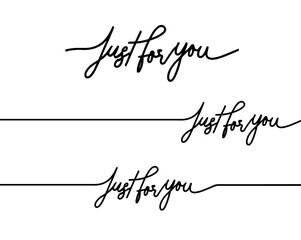 Just for you
Just for you
Just for you